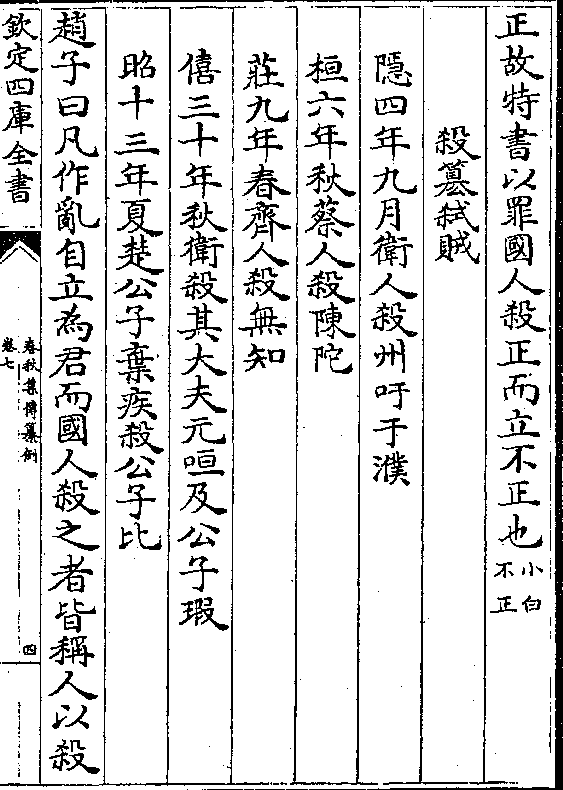 正故特書以罪國人殺正而立不正也小白不正
殺簒弑賊
隱四年九月衛人殺州吁于濮
桓六年秋蔡人殺陳陀
莊九年春齊人殺無知
僖三十年秋衛殺其大夫元咺及公子瑕
昭十三年夏楚公子棄疾殺公子比
趙子曰凡作亂自立為君而國人殺之者皆稱人以殺
欽定四庫全書
春秋集傳纂例
卷七
四